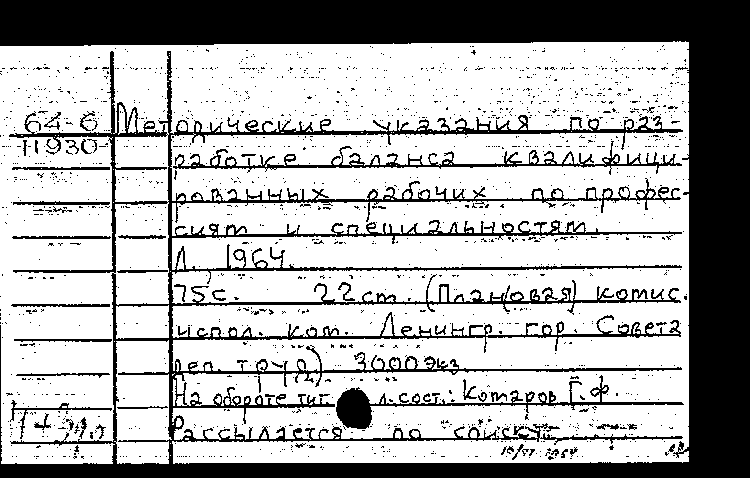 64-6
11930
Методические указания по раз-
работке баланса квалифици-
рованных рабочих по профес-
сиям и специальностям.
Л., 1964.
75с. 22 cm. (Плановая комис.
испол. ком. Ленингр. гор. Совета
деп. труд) 3000 экз.
На обороте тит. л. сост.: Комаров Г.Ф.
Рассылается по списку